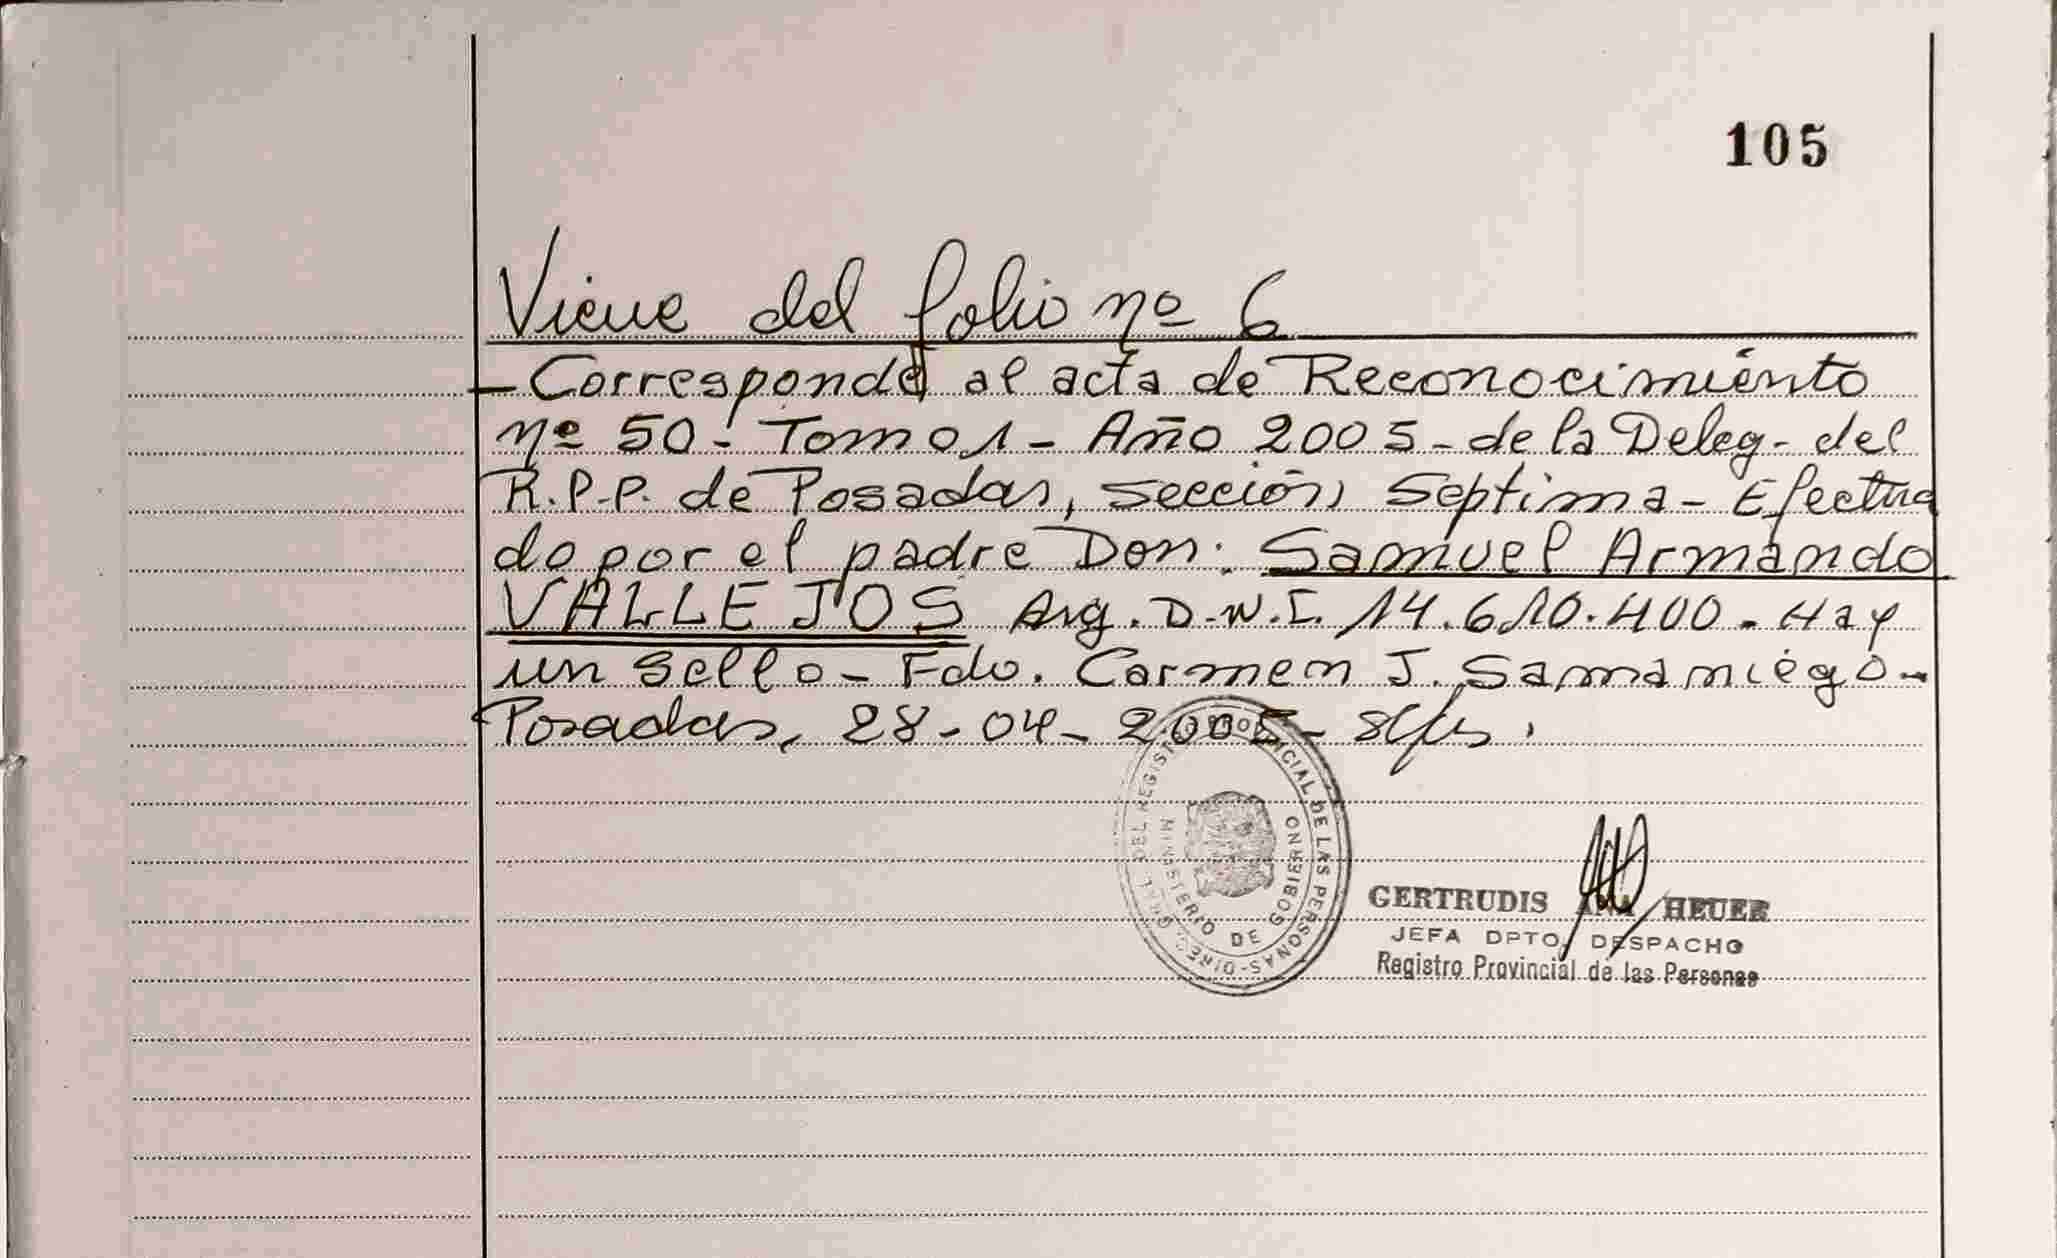 105
Viene del folio nº 6
- Corresponde al acta de Reconocimiento
nº 50 - Tomo 1 - Año 2005 - de la Deleg - del
R.P.P. de Posadas, sección Septima - Efectua
do por el padre Don: Samuel Armando
VALLEJOS Arg. D.N.I. 14.610.400. Hay
un Sello - Fdo. Carmen J. Samaniego -
Posadas, 28-04-2005 -
DEL REGISTRO PROVINCIAL DE LAS PERSONAS - DIREC. GRAL.
MINISTERIO DE GOBIERNO
GERTRUDIS HEUER
JEFA DPTO. DESPACHO
Registro Provincial de las Personas